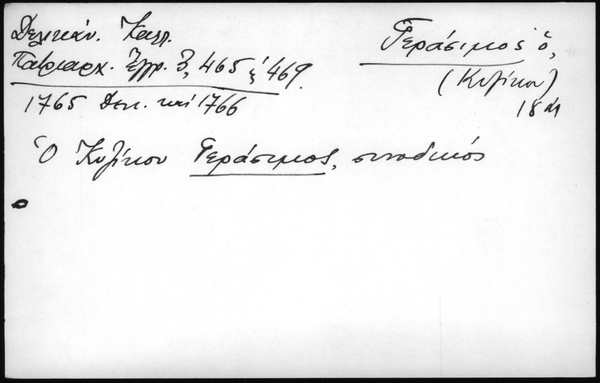 Δελικάν. Καλλ.
Πατριαρχ. Ἔγγρ. 3, 465 ἑ 469.
1765 Δεκ. καὶ 1766
Γεράσιμος ὁ,
(Κυζίκου)
18 αἰ
Ὁ Κυζίκου Γεράσιμος, συνοδικός